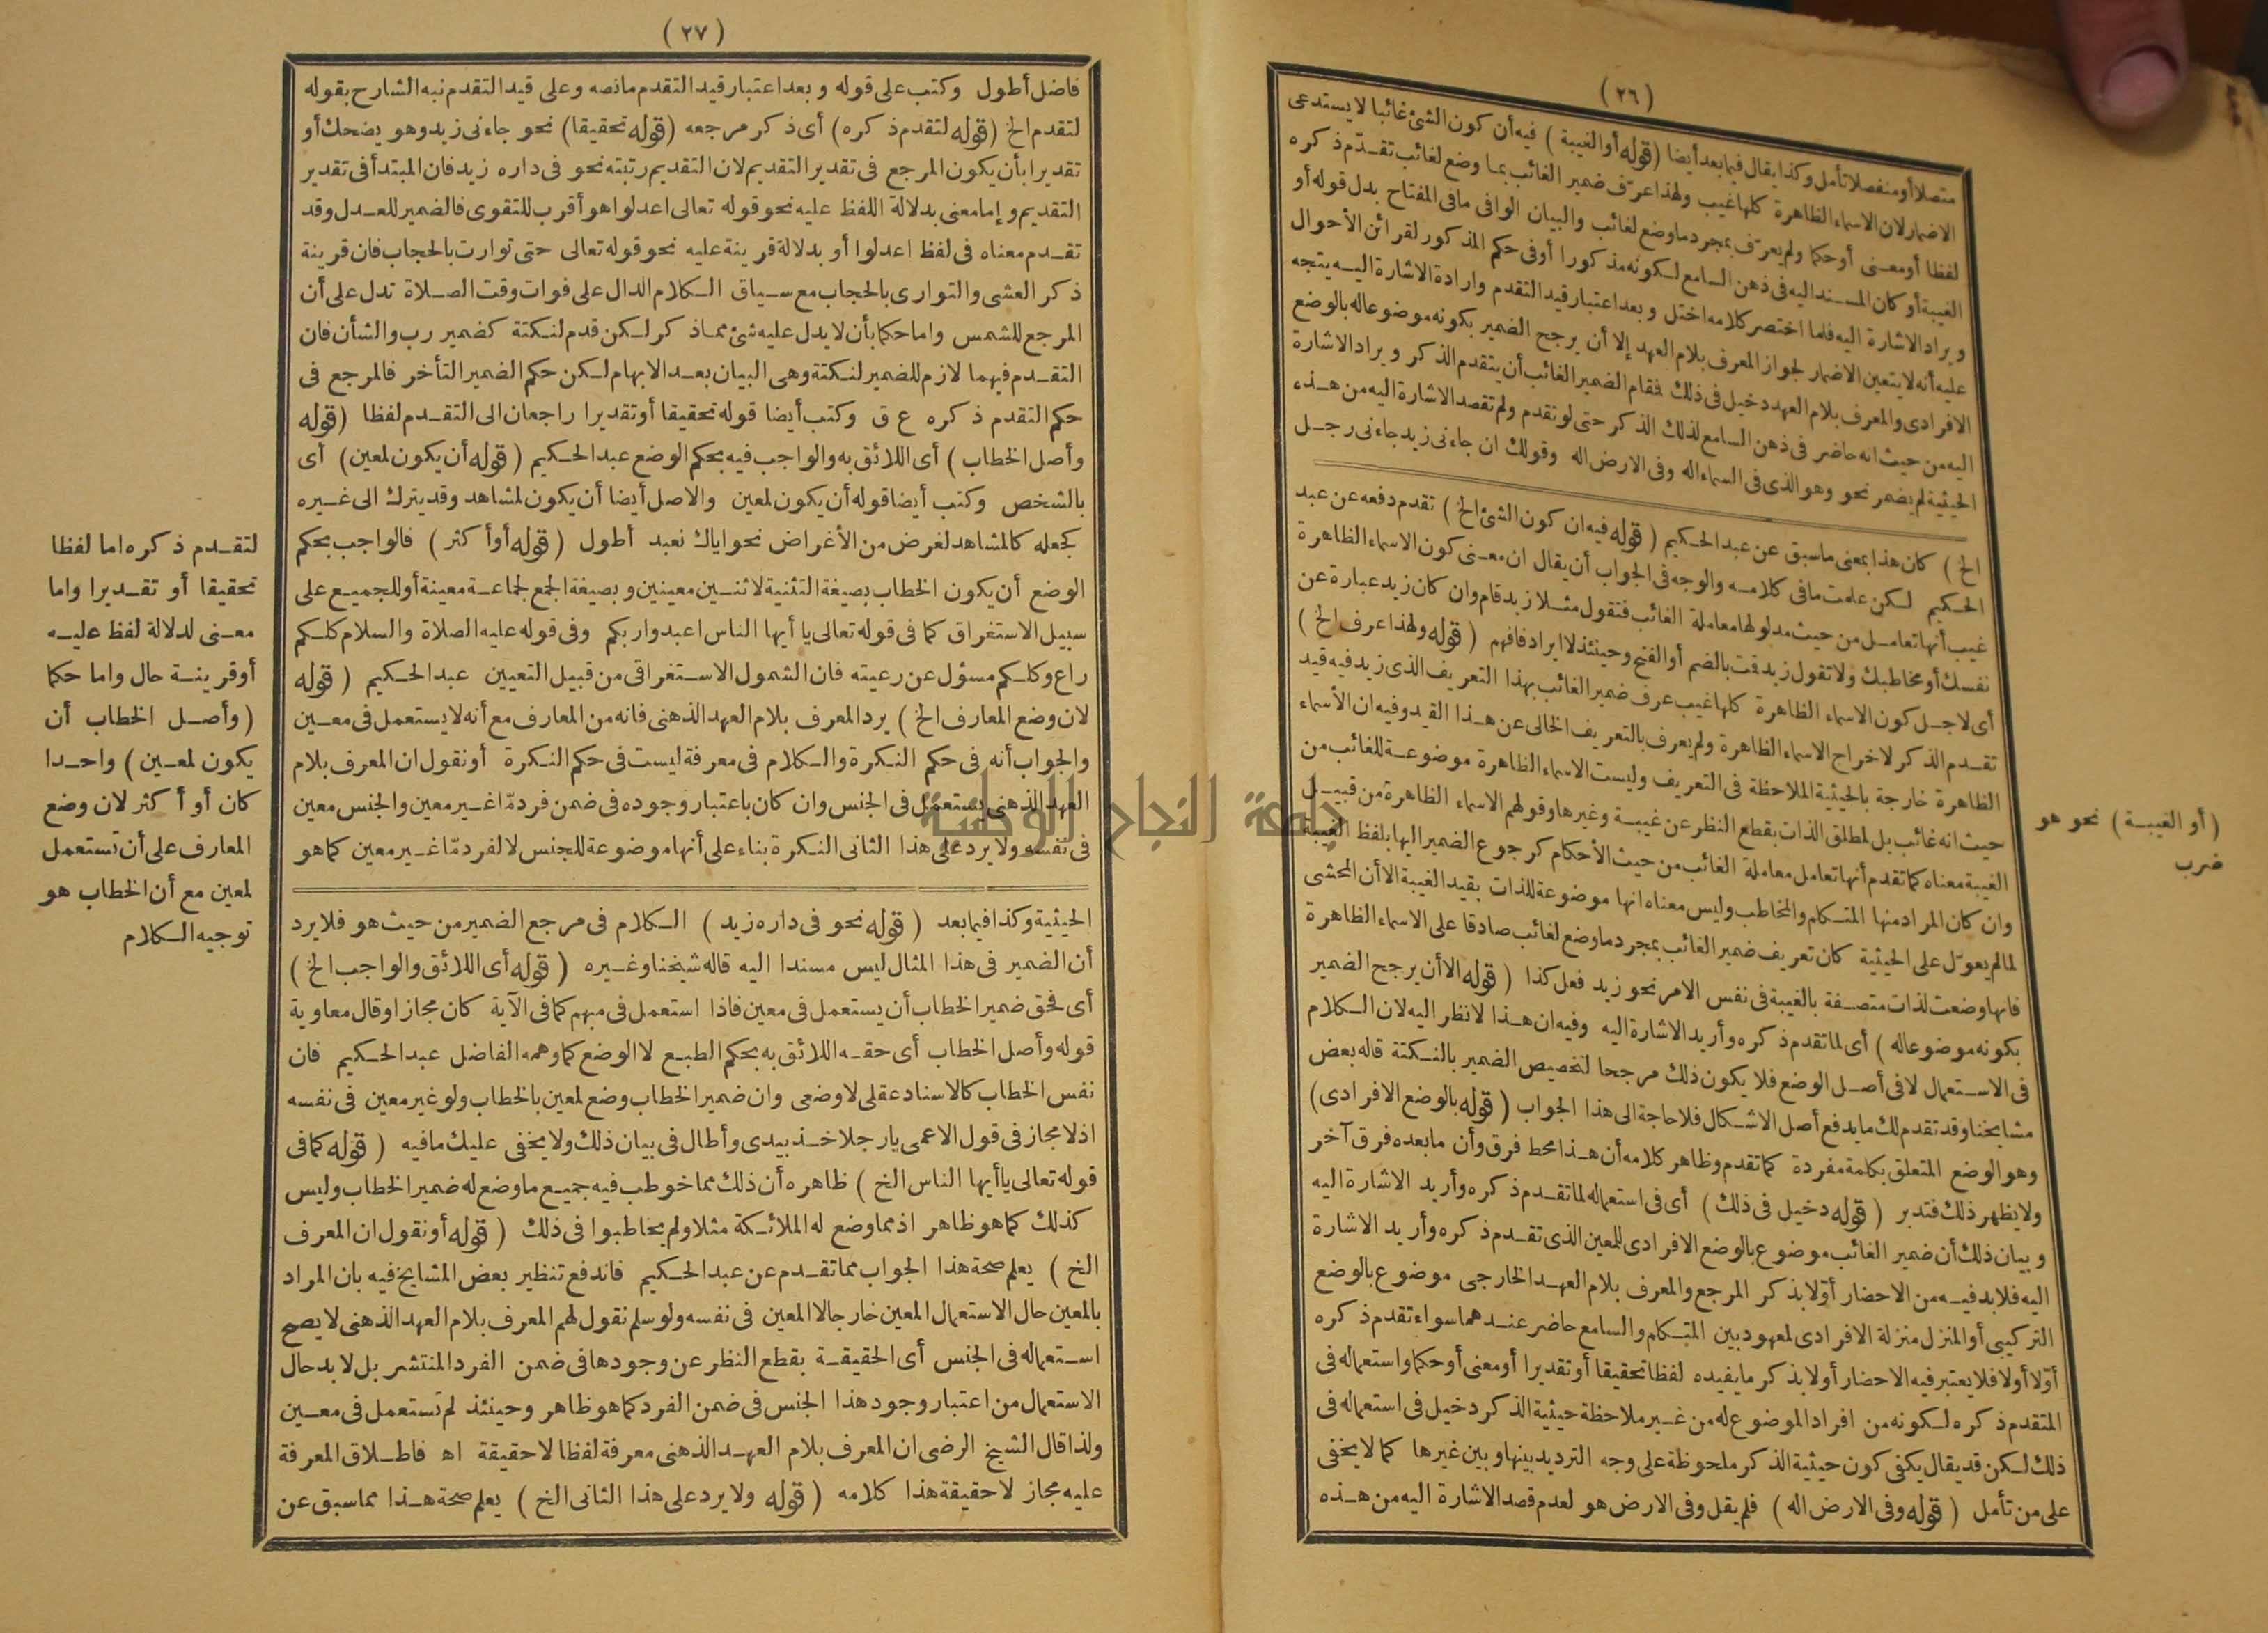 (٢٦)
متصلا أو منفصلا تأمل وكذا يقال فيما بعد أيضا (قوله أو الغيبة) فيه أن كون الشئ غائبا لا يستدعى
الاضمار لان الاسماء الظاهرة كلها غيب ولهذا عرّف ضمير الغائب بما وضع لغائب تقدّم ذكره
لفظا أو معنى أو حكما ولم يعرّف بمجرد ما وضع لغائب والبيان الوافى مافى المفتاح بدل قوله أو
الغيبة أو كان المسند اليه فى ذهن السامع لكونه مذكورا أو فى حكم المذكور لقرائن الأحوال
ويراد الاشارة اليه فلما اختصر كلامه اختل وبعد اعتبار قيد التقدم وارادة الاشارة اليه يتجه
عليه أنه لا يتعين الاضمار لجواز المعرف بلام العهد إلا أن يرجح الضمير بكونه موضوعا له بالوضع
الافرادى والمعرف بلام العهد دخيل فى ذلك فمقام الضمير الغائب أن يتقدم الذكر ويراد الاشارة
اليه من حيث انه حاضر فى ذهن السامع لذلك الذكر حتى لو تقدم ولم تقصد الاشارة اليه من هذه
الحيثية لم يضمر نحو وهو الذى فى السماء اله وفى الارض اله وقولك ان جاءنى زيد جاءنى رجل
الخ) كان هذا بمعنى ماسبق عن عبد الحكيم (قوله فيه ان كون الشئ الخ) تقدم دفعه عن عبد
الحكيم لكن علمت مافى كلامه والوجه فى الجواب أن يقال ان معنى كون الاسماء الظاهرة
غيب أنها تعامل من حيث مدلولها معاملة الغائب فتقول مثلا زيد قام وان كان زيد عبارة عن
نفسك أو مخاطبك ولا تقول زيد قمت بالضم أو الفتح وحينئذ لا ايراد فافهم (قوله ولهذا عرف الخ)
أى لاجل كون الاسماء الظاهرة كلها غيب عرف ضمير الغائب بهذا التعريف الذى زيد فيه قيد
تقدم الذكر لاخراج الاسماء الظاهرة ولم يعرف بالتعريف الخالى عن هذا القيد وفيه ان الأسماء
الظاهرة خارجة بالحيثية الملاحظة فى التعريف وليست الاسماء الظاهرة موضوعة للغائب من
حيث انه غائب بل لمطلق الذات بقطع النظر عن غيبة وغيرها وقولهم الاسماء الظاهرة من قبيل
الغيبة معناه كما تقدم أنها تعامل معاملة الغائب من حيث الأحكام كرجوع الضمير اليها بلفظ الغيبة
وان كان المراد منها المتكلم والمخاطب وليس معناه انها موضوعة للذات بقيد الغيبة الا أن المحشى
لما لم يعوّل على الحيثية كان تعريف ضمير الغائب بمجرد ما وضع لغائب صادقا على الاسماء الظاهرة
فانها وضعت لذات متصفة بالغيبة فى نفس الامر نحو زيد فعل كذا (قوله الا أن يرجح الضمير
بكونه موضوعا له) أى لما تقدم ذكره وأريد الاشارة اليه وفيه ان هذا لا نظر اليه لان الكلام
فى الاستعمال لا فى أصل الوضع فلا يكون ذلك مرجحا لتخصيص الضمير بالنكتة قاله بعض
مشايخنا وقد تقدم لك ما يدفع أصل الاشكال فلا حاجة الى هذا الجواب (قوله بالوضع الافرادى)
وهو الوضع المتعلق بكلمة مفردة كما تقدم وظاهر كلامه أن هذا محط فرق وأن ما بعده فرق آخر
ولا يظهر ذلك فتدبر (قوله دخيل فى ذلك) أى فى استعماله لما تقدم ذكره وأريد الاشارة اليه
وبيان ذلك أن ضمير الغائب موضوع بالوضع الافرادى للمعين الذى تقدم ذكره وأريد الاشارة
اليه فلا بد فيه من الاحضار أوّلا بذكر المرجع والمعرف بلام العهد الخارجى موضوع بالوضع
التركيبى أو المنزل منزلة الافرادى لمعهود بين المتكلم والسامع حاضر عندهما سواء تقدم ذكره
أوّلا أو لا فلا يعتبر فيه الاحضار أولا بذكر ما يفيده لفظا تحقيقا أو تقديرا أو معنى أو حكما واستعماله فى
المتقدم ذكره لكونه من افراد الموضوع له من غير ملاحظة حيثية الذكر دخيل فى استعماله فى
ذلك لكن قد يقال يكفى كون حيثية الذكر ملحوظة على وجه الترديد بينها وبين غيرها كما لا يخفى
على من تأمل (قوله وفى الارض اله) فلم يقل وفى الارض هو لعدم قصد الاشارة اليه من هذه
(أو الغيبة) نحو هو
ضرب
(٢٧)
فاضل أطول وكتب على قوله وبعد اعتبار قيد التقدم ما نصه وعلى قيد التقدم نبه الشارح بقوله
لتقدم الخ (قوله لتقدم ذكره) أى ذكر مرجعه (قوله تحقيقا) نحو جاءنى زيد وهو يضحك أو
تقديرا بأن يكون المرجع فى تقدير التقديم لان التقديم رتبته نحو فى داره زيد فان المبتدأ فى تقدير
التقديم وإما معنى بدلالة اللفظ عليه نحو قوله تعالى اعدلوا هو أقرب للتقوى فالضمير للعدل وقد
تقدم معناه فى لفظ اعدلوا أو بدلالة قرينة عليه نحو قوله تعالى حتى توارت بالحجاب فان قرينة
ذكر العشى والتوارى بالحجاب مع سياق الكلام الدال على فوات وقت الصلاة تدل على أن
المرجع للشمس واما حكما بأن لا يدل عليه شئ مماذ كر لكن قدم لنكتة كضمير رب والشأن فان
التقدم فيهما لازم للضمير لنكتة وهى البيان بعد الابهام لكن حكم الضمير التأخر فالمرجع فى
حكم التقدم ذكره ع ق وكتب أيضا قوله تحقيقا أو تقديرا راجعان الى التقدم لفظا (قوله
وأصل الخطاب) أى اللائق به والواجب فيه بحكم الوضع عبد الحكيم (قوله أن يكون لمعين) أى
بالشخص وكتب أيضا قوله أن يكون لمعين والاصل أيضا أن يكون لمشاهد وقد يترك الى غيره
بجعله كالمشاهد لغرض من الأغراض نحو اياك نعبد أطول (قوله أو أكثر) فالواجب بحكم
الوضع أن يكون الخطاب بصيغة التثنية لاثنين معينين وبصيغة الجمع لجماعة معينة أو للجميع على
سبيل الاستغراق كما فى قوله تعالى يا أيها الناس اعبدوا ربكم وفى قوله عليه الصلاة والسلام كلكم
راع وكلكم مسؤل عن رعيته فان الشمول الاستغراقى من قبيل التعيين عبد الحكيم (قوله
لان وضع المعارف الخ) يرد المعرف بلام العهد الذهنى فانه من المعارف مع أنه لا يستعمل فى معين
والجواب أنه فى حكم النكرة والكلام فى معرفة ليست فى حكم النكرة أو نقول ان المعرف بلام
العهد الذهنى يستعمل فى الجنس وان كان باعتبار وجوده فى ضمن فرد مّا غير معين والجنس معين
فى نفسه ولا يرد على هذا الثانى النكرة بناء على أنها موضوعة للجنس لا لفرد مّا غير معين كما هو
الحيثية وكذا فيما بعد (قوله نحو فى داره زيد) الكلام فى مرجع الضمير من حيث هو فلا يرد
أن الضمير فى هذا المثال ليس مسندا اليه قاله شيخنا وغيره (قوله أى اللائق والواجب الخ)
أى فحق ضمير الخطاب أن يستعمل فى معين فاذا استعمل فى مبهم كما فى الآية كان مجازا وقال معاوية
قوله وأصل الخطاب أى حقه اللائق به بحكم الطبع لا الوضع كما وهمه الفاضل عبد الحكيم فان
نفس الخطاب كالاسناد عقلى لا وضعى وان ضمير الخطاب وضع لمعين بالخطاب ولو غير معين فى نفسه
اذ لا مجاز فى قول الاعمى يا رجلا خذ بيدى وأطال فى بيان ذلك ولا يخفى عليك ما فيه (قوله كما فى
قوله تعالى يا أيها الناس الخ) ظاهره أن ذلك مما خوطب فيه جميع ما وضع له ضمير الخطاب وليس
كذلك كما هو ظاهر اذ مما وضع له الملائكة مثلا ولم يخاطبوا فى ذلك (قوله أو نقول ان المعرف
الخ) يعلم صحة هذا الجواب مما تقدم عن عبد الحكيم فاندفع تنظير بعض المشايخ فيه بان المراد
بالمعين حال الاستعمال المعين خارجا لا المعين فى نفسه ولو سلم نقول لهم المعرف بلام العهد الذهنى لا يصح
استعماله فى الجنس أى الحقيقة بقطع النظر عن وجودها فى ضمن الفرد المنتشر بل لا بد حال
الاستعمال من اعتبار وجود هذا الجنس فى ضمن الفرد كما هو ظاهر وحينئذ لم تستعمل فى معين
ولذا قال الشيخ الرضى ان المعرف بلام العهد الذهنى معرفة لفظا لا حقيقة اه فاطلاق المعرفة
عليه مجاز لا حقيقة هذا كلامه (قوله ولا يرد على هذا الثانى الخ) يعلم صحة هذا مما سبق عن
لتقدم ذكره اما لفظا
تحقيقا أو تقديرا واما
معنى لدلالة لفظ عليه
أو قرينة حال واما حكما
(وأصل الخطاب أن
يكون لمعين) واحدا
كان أو أكثر لان وضع
المعارف على أن تستعمل
لمعين مع أن الخطاب هو
توجيه الكلام
جامعة النجاح الوطنية